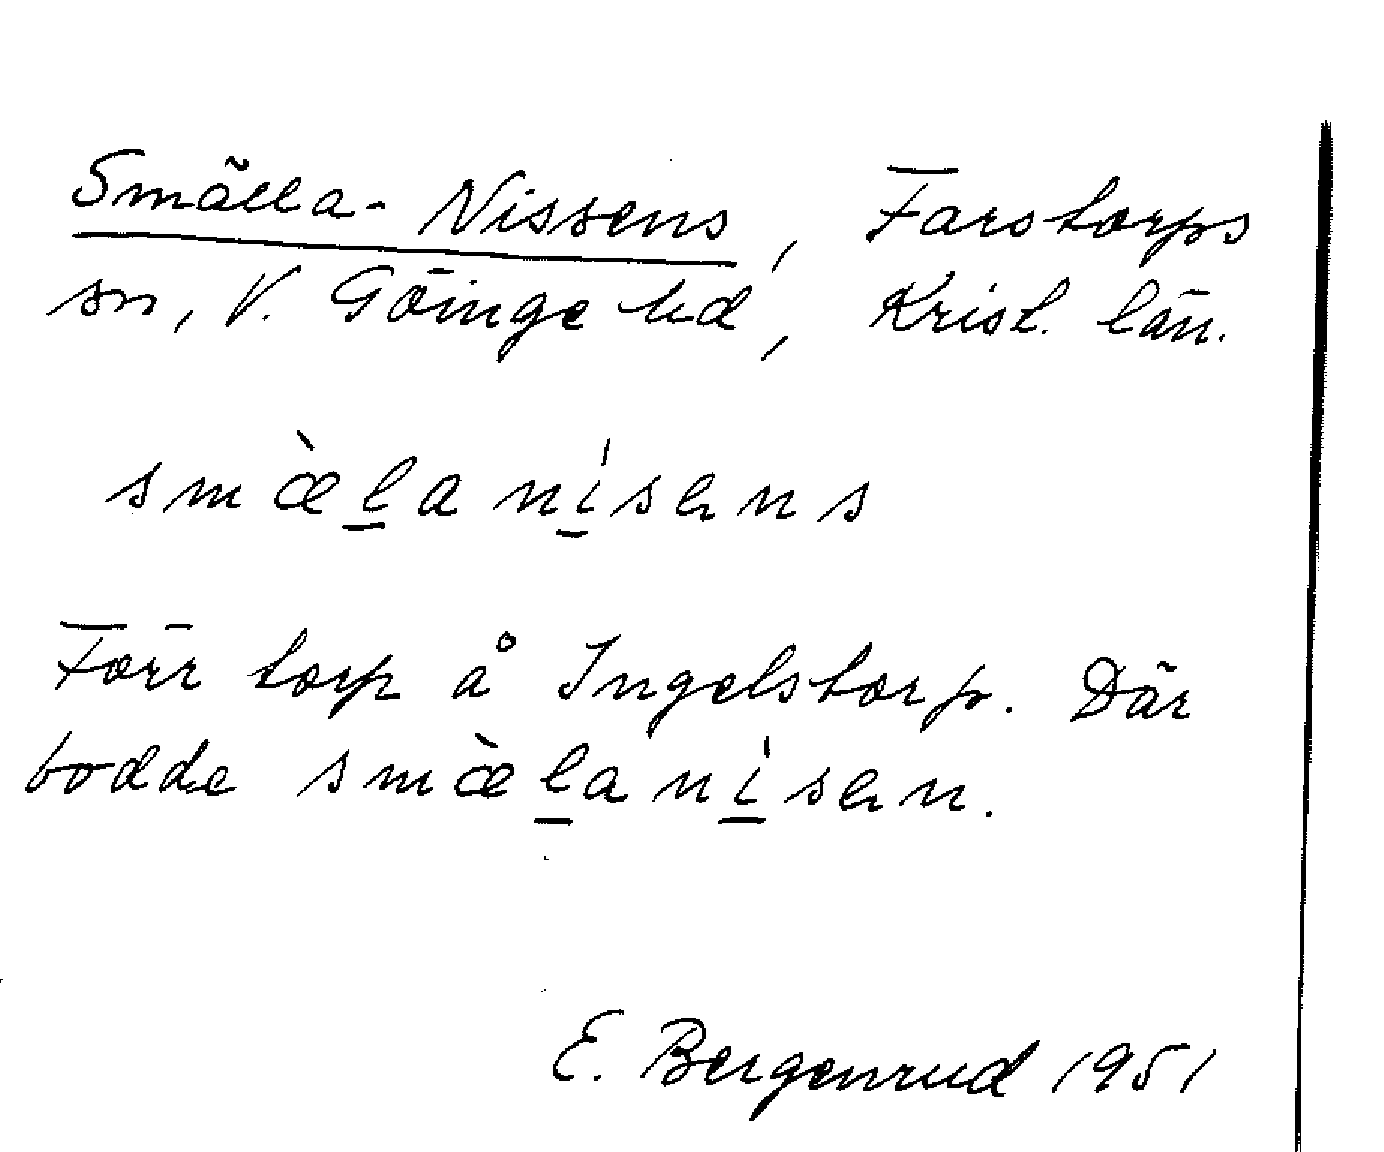 Smälla-Nissens, Farstorps
sn, V. Göinge hd, Krist. län.
smæ̀l̲a ní̲sens
Förr torp å Ingelstorp. Där
bodde smæ̀l̲a ní̲sen.
E. Bergenrud 1951